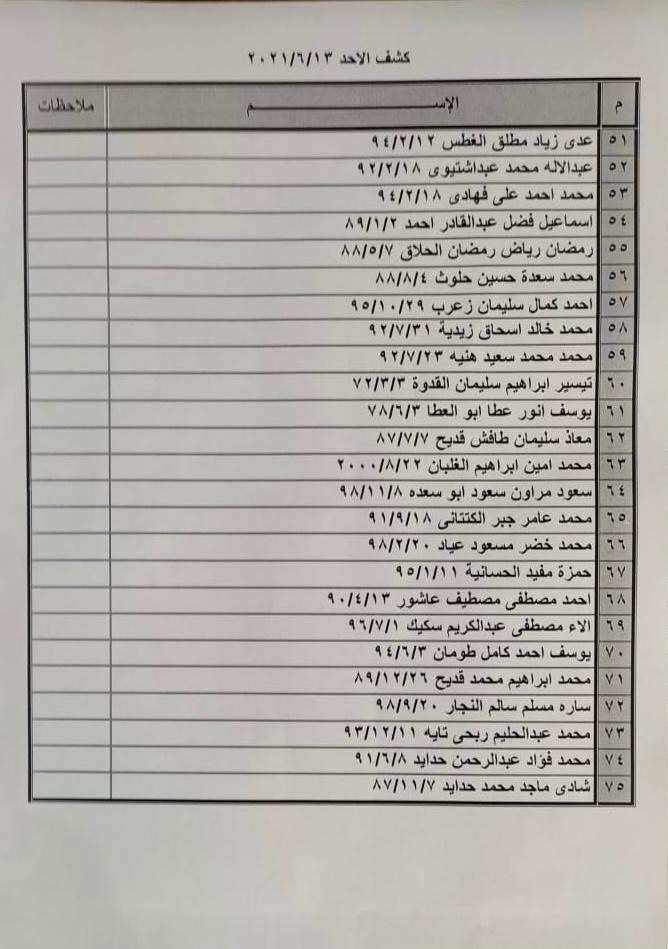 كشف الاحد ٢٠٢١/٦/١٣
م الإســـــــم ملاحظات
٥١ عدى زياد مطلق الغطس ٩٤/٢/١٢
٥٢ عبدالاله محمد عبداشتيوى ٩٢/٢/١٨
٥٣ محمد احمد على فهادى ٩٤/٢/١٨
٥٤ اسماعيل فضل عبدالقادر احمد ٨٩/١/٢
٥٥ رمضان رياض رمضان الحلاق ٨٨/٥/٧
٥٦ محمد سعدة حسين حلوث ٨٨/٨/٤
٥٧ احمد كمال سليمان زعرب ٩٥/١٠/٢٩
٥٨ محمد خالد اسحاق زيدية ٩٢/٧/٣١
٥٩ محمد محمد سعيد هنيه ٩٢/٧/٢٣
٦٠ تيسير ابراهيم سليمان القدوة ٧٢/٣/٣
٦١ يوسف انور عطا ابو العطا ٧٨/٦/٣
٦٢ معاذ سليمان طافش قديح ٨٧/٧/٧
٦٣ محمد امين ابراهيم الغلبان ٢٠٠٠/٨/٢٢
٦٤ سعود مراون سعود ابو سعده ٩٨/١١/٨
٦٥ محمد عامر جبر الكتتانى ٩١/٩/١٨
٦٦ محمد خضر مسعود عياد ٩٨/٢/٢٠
٦٧ حمزة مفيد الحسانية ٩٥/١/١١
٦٨ احمد مصطفى مصطيف عاشور ٩٠/٤/١٣
٦٩ الاء مصطفى عبدالكريم سكيك ٩٦/٧/١
٧٠ يوسف احمد كامل طومان ٩٤/٦/٣
٧١ محمد ابراهيم محمد قديح ٨٩/١٢/٢٦
٧٢ ساره مسلم سالم النجار ٩٨/٩/٢٠
٧٣ محمد عبدالحليم ربحى تايه ٩٣/١٢/١١
٧٤ محمد فؤاد عبدالرحمن حدايد ٩١/٦/٨
٧٥ شادى ماجد محمد حدايد ٨٧/١١/٧